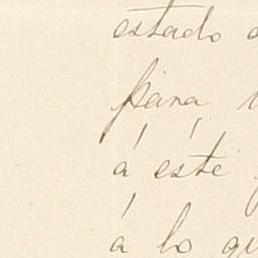 estado
para
á éste
á lo qu